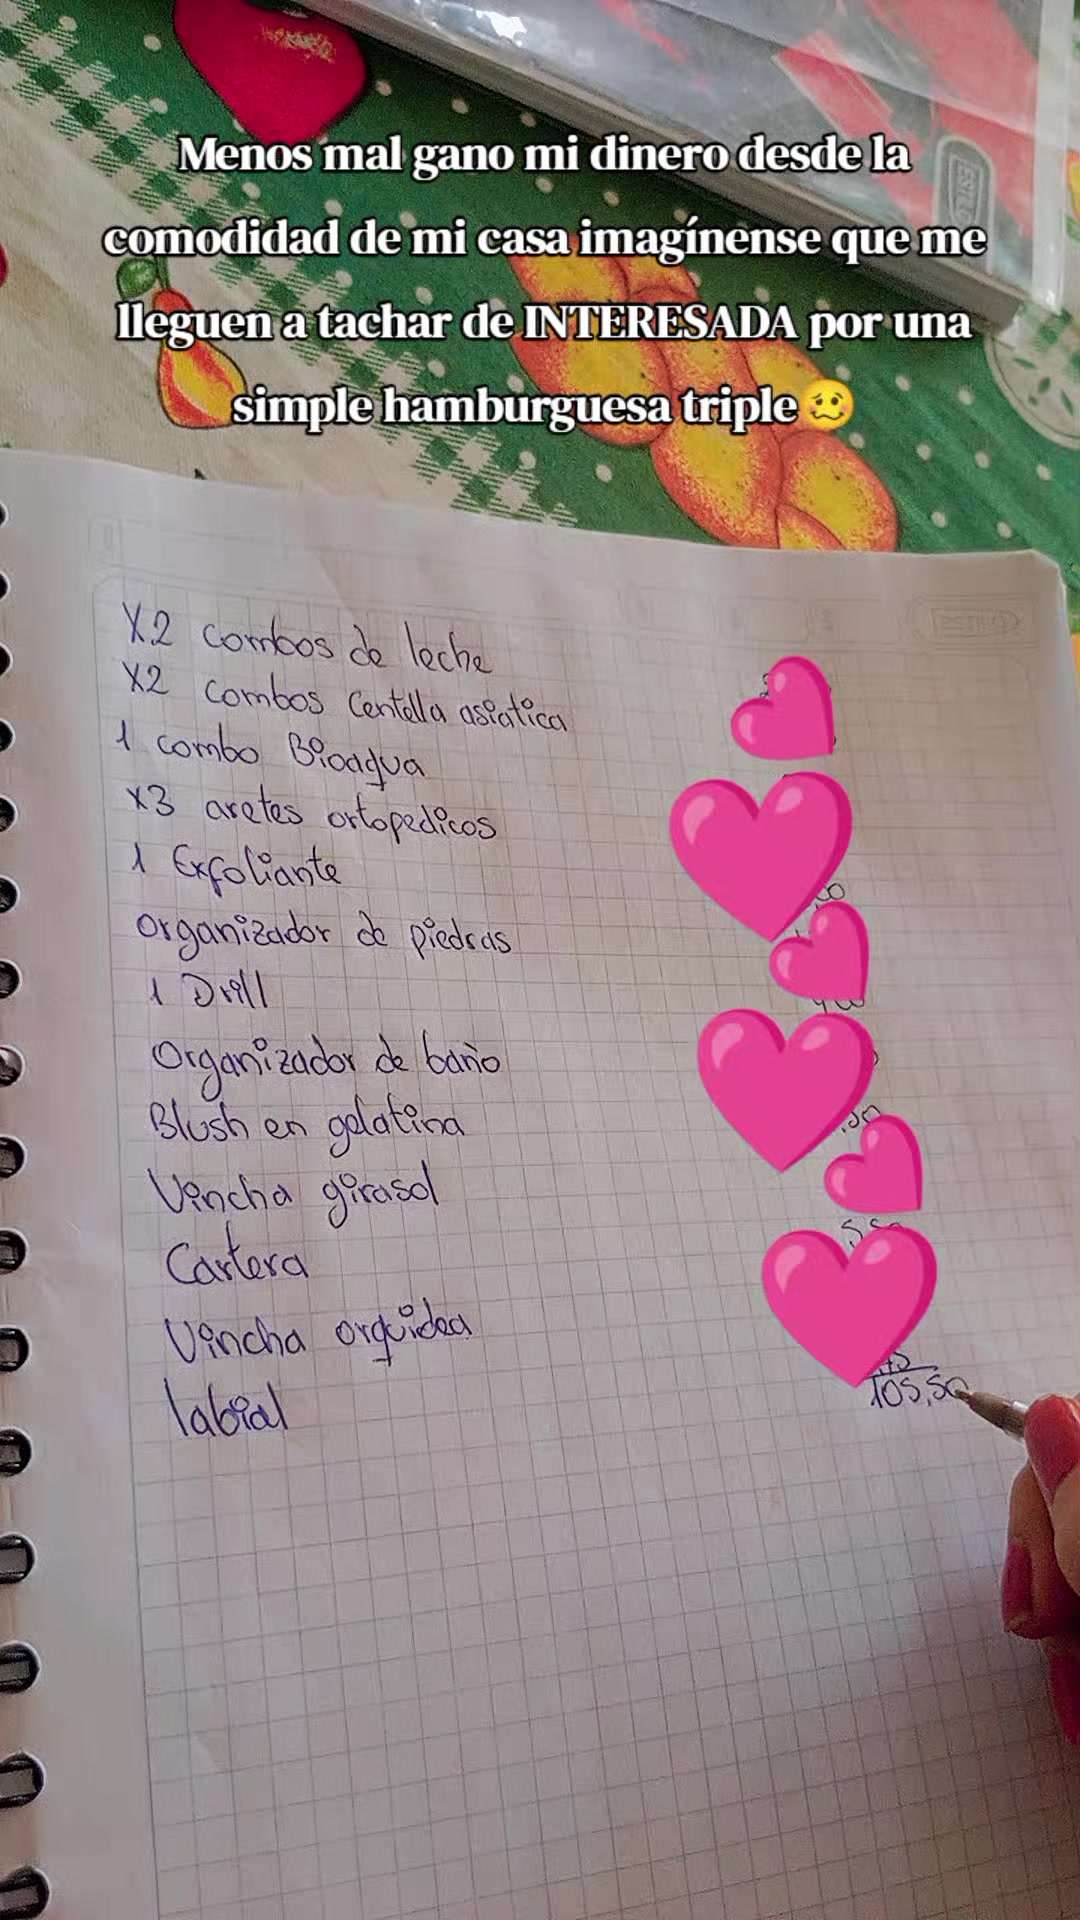 Menos mal gano mi dinero desde la
comodidad de mi casa imagínense que me
lleguen a tachar de INTERESADA por una
simple hamburguesa triple🥴
X2 combos de leche
X2 combos Centella asiatica
1 combo Bioagua
x3 aretes ortopedicos
1 Exfoliante
organizador de piedras
1 Drill
Organizador de baño
Blush en gelatina
Vincha girasol
Cartera
Vincha orquidea
labial
105,50